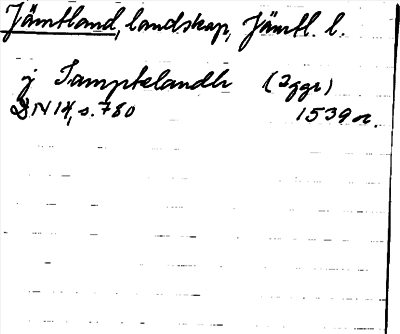 Jämtland, landskap, Jämtl. l.
j Jamptelandh (2ggr)
DN 14, s. 780 1539 or.